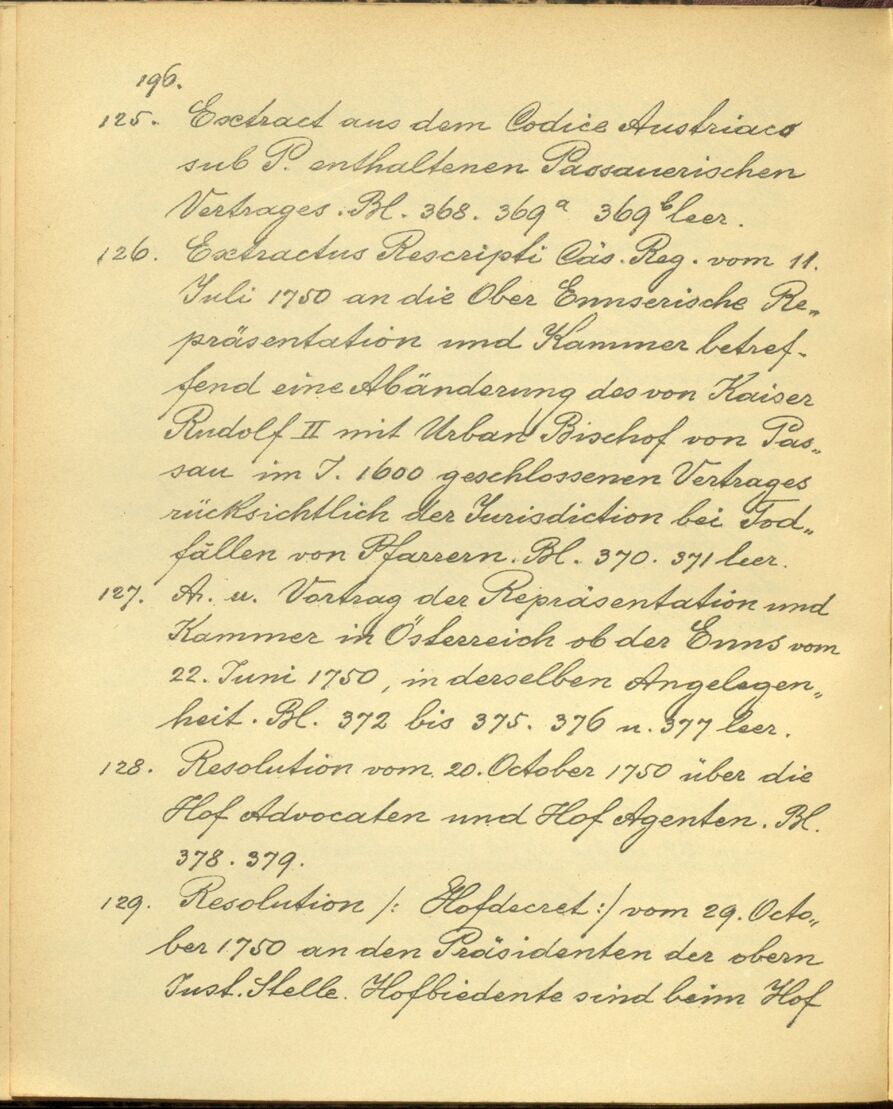 196.
125. Exctract aus dem Codice Austriaco
sub P. enthaltenen Passauerischen
Vertrages. Bl. 368. 369ª 369ᵇ leer.
126. Exctractus Rescripti Cäs. Reg. vom 11.
Juli 1750 an die Ober Ennserische Re„
präsentation und Kammer betref-
fend eine Abänderung des von Kaiser
Rudolf II mit Urban Bischof von Pas„
sau im J. 1600 geschlossenen Vertrages
rücksichtlich der Jurisdiction bei Tod„
fällen von Pfarrern. Bl. 370. 371 leer.
127. A. u. Vortrag der Repräsentation und
Kammer in Österreich ob der Enns vom
22. Juni 1750, in derselben Angelegen„
heit. Bl. 372 bis 375. 376 u. 377 leer.
128. Resolution vom 20. October 1750 über die
Hof Advocaten und Hof Agenten. Bl.
378. 379.
129. Resolution /: Hofdecret :/ vom 29. Octo„
ber 1750 an den Präsidenten der obern
Just. Stelle. Hofbiedente sind beim Hof